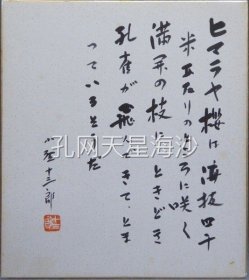 ヒマラヤ桜は海抜四千
米あたりのところに咲く
満開の枝にときどき
孔雀が飛んできてとま
っているそうだ
小野十三郎
孔网天星海沙